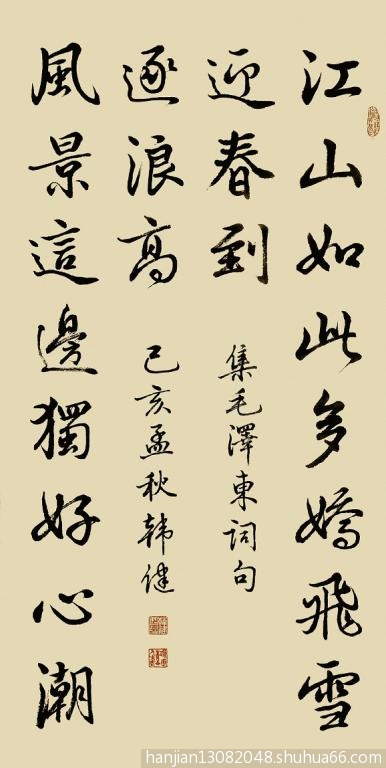 江山如此多嬌飛雪
迎春到
風景這邊獨好心潮
逐浪高
集毛澤東詞句
己亥孟秋韩健
hanjian13082048.shuhua66.com